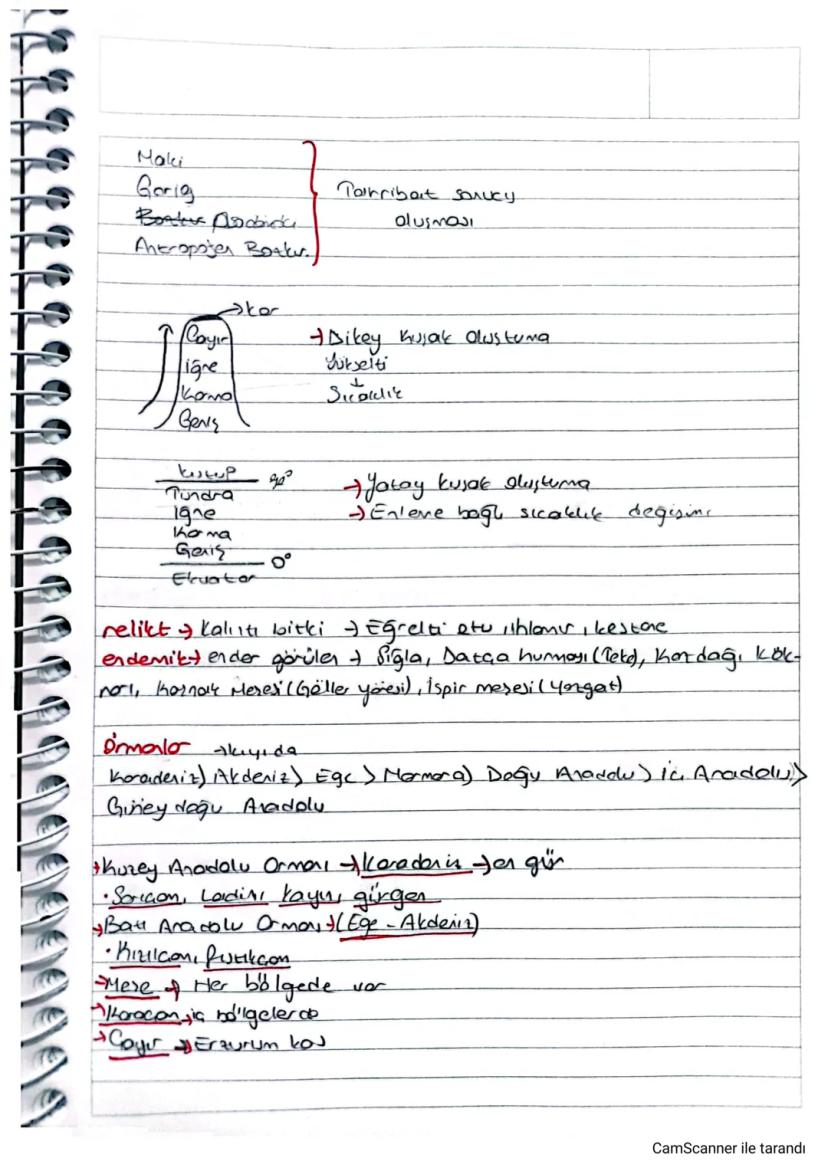 Maki
Garig
Psödomaki
Antropojen Bozkır.
Tahribat sonucu
oluşması
→ kar
Çayır
iğne
Karma
Geniş
→ Dikey kuşak oluşturma
Yükselti
↓
Sıcaklık
kutup 90°
Tundra
iğne
Karma
Geniş 0°
Ekvator
→ Yatay kuşak oluşturma
→ Enleme bağlı sıcaklık değişimi
relikt → Kalıntı bitki → Eğrelti otu, ıhlamur, kestane
endemik → ender görülen → Sığla, Datça hurması (Teke), Kazdağı Kök-
narı, Kasnak Meşesi (Göller yöresi), İspir meşesi (Yozgat)
Ormanlar → kıyıda
Karadeniz > Akdeniz > Ege > Marmara > Doğu Anadolu > iç Anadolu >
Güney doğu Anadolu
→ Kuzey Anadolu Ormanı → Karadeniz → en gür
· Sarıçam, Ladin, kayın, gürgen
→ Batı Anadolu Ormanı → (Ege - Akdeniz)
· Kızılçam, fıstıkçam
→ Meşe → Her bölgede var
→ Karaçam → iç bölgelerde
→ Çayır → Erzurum kars
CamScanner ile tarandı